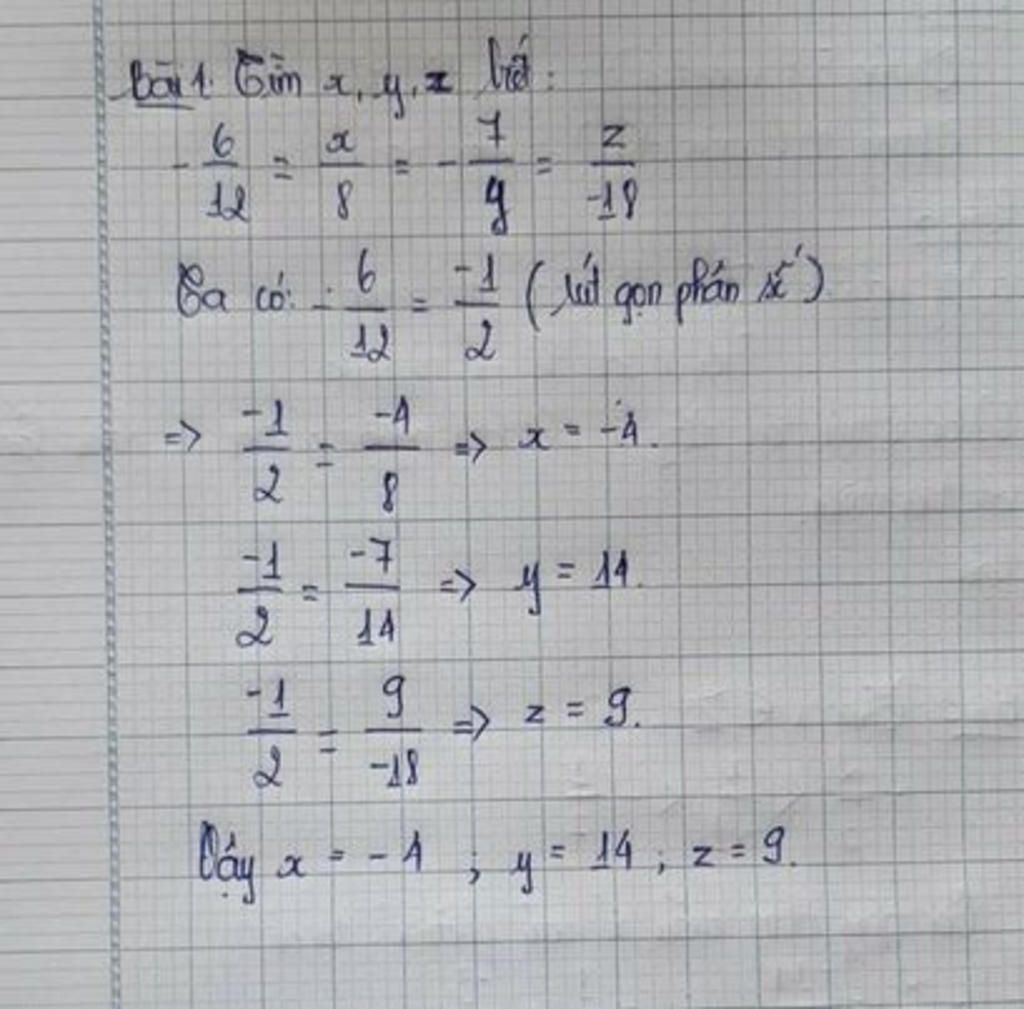 Bài 1. Tìm x, y, z biết:
- 6/12 = x/8 = - 7/y = z/-18
Ta có: - 6/12 = -1/2 (rút gọn phân số)
=> -1/2 = -4/8 => x = -4.
-1/2 = -7/14 => y = 14.
-1/2 = 9/-18 => z = 9.
Vậy x = -4 ; y = 14 ; z = 9.